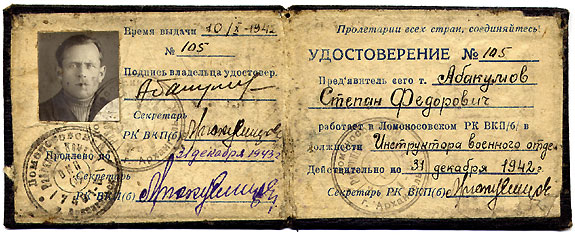 Время выдачи 10/X-1942
№ 105
Подпись владельца удостовер.
Абакумов
Секретарь
РК ВКП(б)
Продлено до 31 декабря 1943 г.
Секретарь
РК ВКП(б)
Пролетарии всех стран, соединяйтесь!
УДОСТОВЕРЕНИЕ № 105
Пред'явитель сего т. Абакумов
Степан Федорович
работает в Ломоносовском РК ВКП/б/ в
должности Инструктора военного отде.
Действительно по 31 декабря 1942 г.
Секретарь РК ВКП(б)